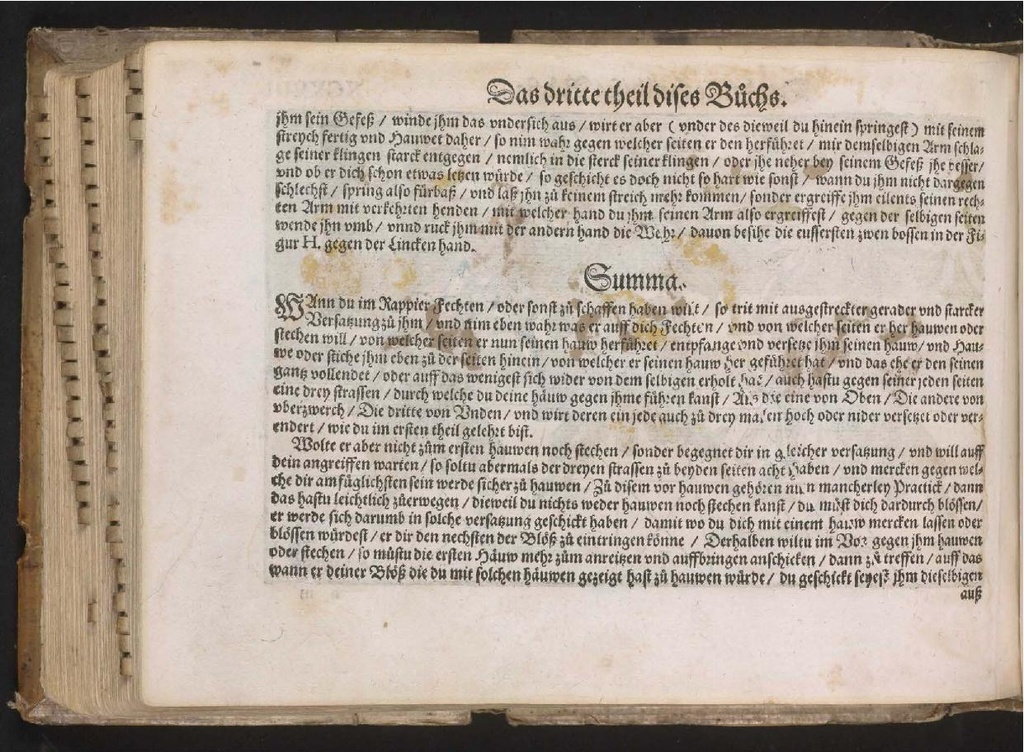 Das dritte theil dises Bůchs.
jhm sein Gefeß / winde jhm das vndersich aus / wirt er aber ( vnder des dieweil du hinein springest ) mit seinem
streych fertig vnd Hauwet daher / so nim wahr gegen welcher seiten er den herfůhret / mit demselbigen Arm schla-
ge seiner klingen starck entgegen / nemlich in die sterck seiner klingen / oder jhe neher bey seinem Gefeß jhe besser /
vnd ob er dich schon etwas letzen wůrde / so geschicht es doch nicht so hart wie sonst / wann du jhm nicht dargegen
schlechst / spring also fůrbaß / vnd laß jhn zů keinem streich mehr kommen / sonder ergreiffe jhm eilents seinen rech-
ten Arm mit verkehrten henden / mit welcher hand du jhm seinen Arm also ergreiffest / gegen der selbigen seiten
wende jhn vmb / vnnd ruck jhm mit der andern hand die Wehr / dauon besihe die eussersten zwen bossen in der Fi-
gur H. gegen der Lincken hand.
Summa.
WAnn du im Rappier Fechten / oder sonst zů schaffen haben wilt / so trit mit ausgestreckter gerader vnd starcker
Versatzung zů jhm / vnd nim eben wahr was er auff dich Fechten / vnd von welcher seiten er her hauwen oder
stechen will / von welcher seiten er nun seinen hauw herfůhret / entpfange vnd versetze jhm seinen hauw / vnd Hau-
we oder stiche jhm eben zů der seiten hinein / von welcher er seinen hauw her gefůhrt hat / vnd das ehe er den seinen
gantz vollendet / oder auff das wenigest sich wider von dem selbigen erholt hat / auch hastu gegen seiner jeden seiten
eine drey strassen / durch welche du deine håuw gegen jhme fůhren kanst / Als die eine von Oben / Die andere von
vberzwerch / Die dritte von Vnden / vnd wirt deren ein jede auch zů drey malen hoch oder nider versetzt oder ver-
endert / wie du im ersten theil gelehrt bist.
Wolte er aber nicht zům ersten hauwen noch stechen / sonder begegnet dir in gleicher versatzung / vnd will auff
dein angreiffen warten / so soltu abermals der dreyen strassen zů beyden seiten acht haben / vnd mercken gegen wel-
che dir am fůglichsten sein werde sicher zů hauwen / Zů disem vor hauwen gehören nun mancherley Practick / dann
das hastu leichtlich zůerwegen / dieweil du nichts weder hauwen noch stechen kanst / du můst dich dardurch blössen /
er werde sich darumb in solche versatzung geschickt haben / damit wo du dich mit einem hauw mercken lassen oder
blössen wůrdest / er dir den nechsten der Blöß zů eintringen könne / Derhalben wiltu im Vor gegen jhm hauwen
oder stechen / so můstu die ersten Håuw mehr zům anreitzen vnd auffbringen anschicken / dann zů treffen / auff das
wann er deiner Blöß die du mit solchen håuwen gezeigt hast zů hauwen wůrde / du geschickt seyest jhm dieselbigen
auß